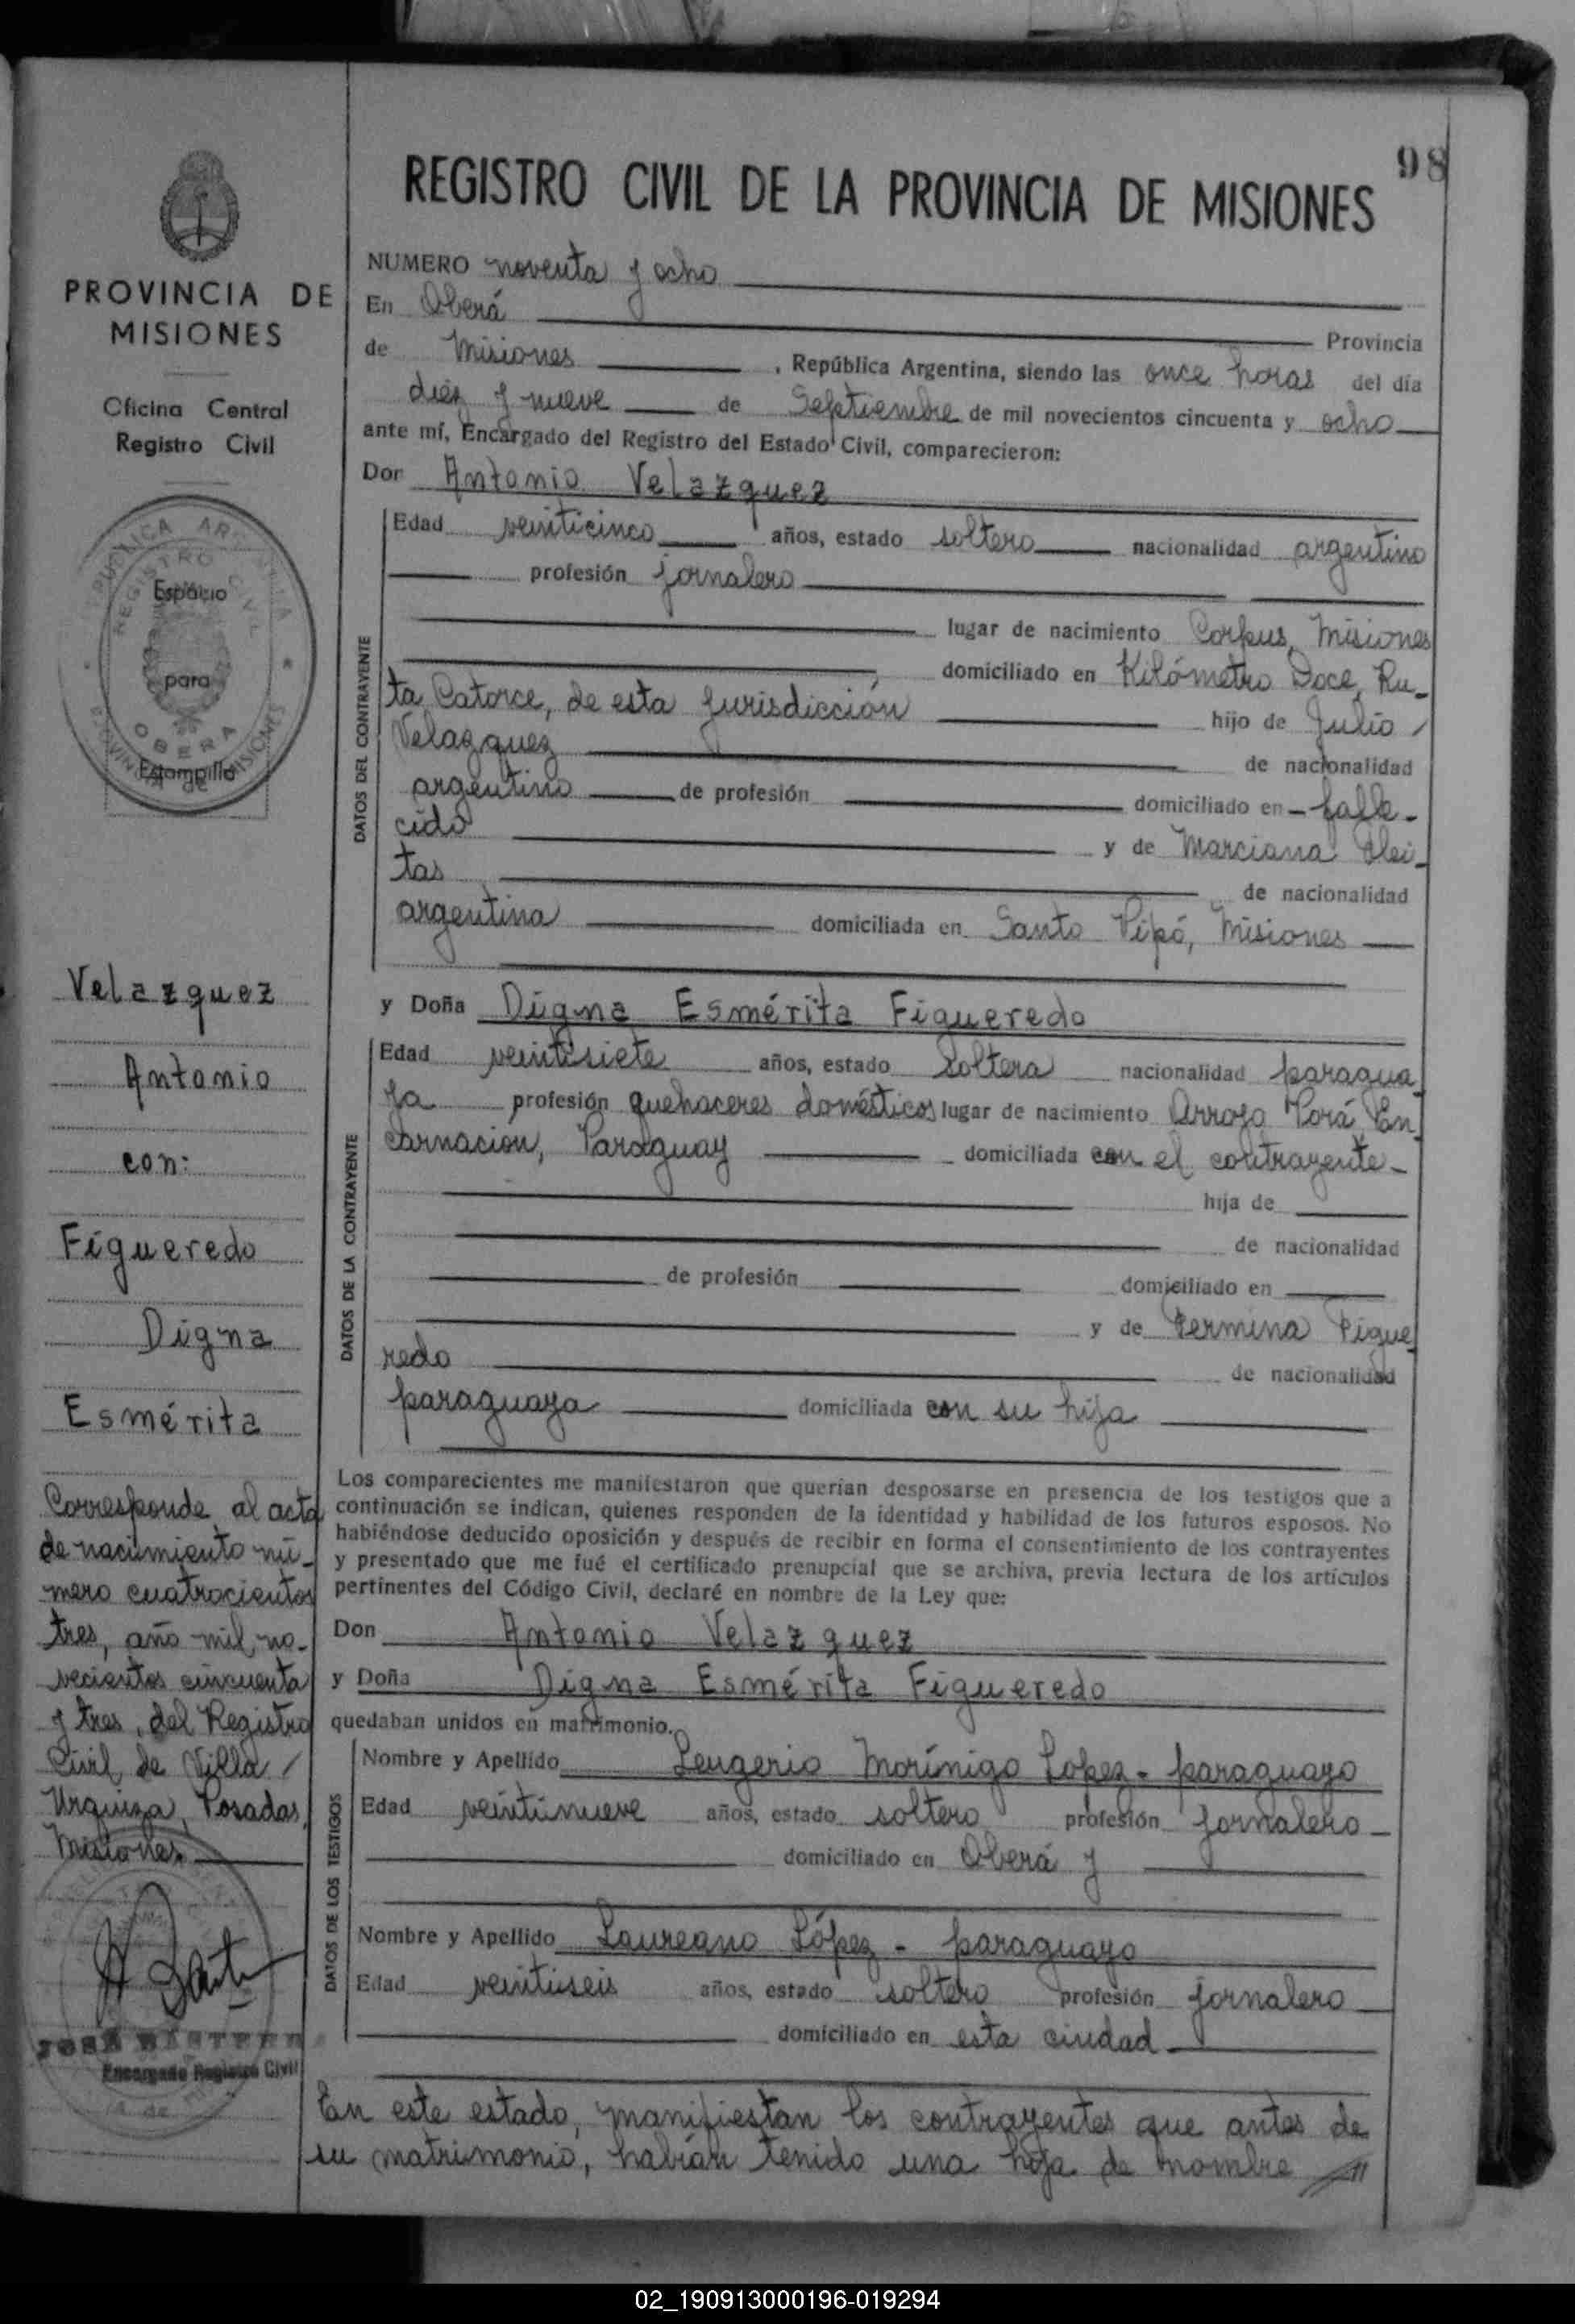 98
REGISTRO CIVIL DE LA PROVINCIA DE MISIONES
PROVINCIA DE
MISIONES
Oficina Central
Registro Civil
REPUBLICA ARGENTINA
REGISTRO CIVIL
Espacio
para
Estampilla
OBERA
PROVINCIA DE MISIONES
Velazquez
Antonio
con:
Figueredo
Digna
Esmérita
Corresponde al acta
de nacimiento nú-
mero cuatrocientos
tres, año mil no-
vecientos cincuenta
y tres, del Registro
Civil de Villa /
Urquiza, Posadas,
Misiones.
JOSE
Encargado Registro Civil
NUMERO noventa y ocho
En Oberá Provincia
de Misiones , República Argentina, siendo las once horas del día
diez y nueve de Septiembre de mil novecientos cincuenta y ocho
ante mí, Encargado del Registro del Estado Civil, comparecieron:
Don Antonio Velazquez
DATOS DEL CONTRAYENTE
Edad veinticinco años, estado soltero nacionalidad argentino
profesión jornalero
lugar de nacimiento Corpus, Misiones
domiciliado en Kilómetro Doce, Ru-
ta Catorce, de esta Jurisdicción hijo de Julio /
Velazquez de nacionalidad
argentino de profesión domiciliado en - falle-
cido y de Marciana Olei-
tas de nacionalidad
argentina domiciliada en Santo Pipó, Misiones
y Doña Digna Esmérita Figueredo
DATOS DE LA CONTRAYENTE
Edad veintisiete años, estado soltera nacionalidad paragua-
ya profesión quehaceres domésticos lugar de nacimiento Arroyo Porá, En-
carnación, Paraguay domiciliada con el contrayente-
hija de
de nacionalidad
de profesión domiciliado en
y de Fermina Figue-
redo de nacionalidad
paraguaya domiciliada con su hija
Los comparecientes me manifestaron que querían desposarse en presencia de los testigos que a
continuación se indican, quienes responden de la identidad y habilidad de los futuros esposos. No
habiéndose deducido oposición y después de recibir en forma el consentimiento de los contrayentes
y presentado que me fué el certificado prenupcial que se archiva, previa lectura de los artículos
pertinentes del Código Civil, declaré en nombre de la Ley que:
Don Antonio Velazquez
y Doña Digna Esmérita Figueredo
quedaban unidos en matrimonio.
DATOS DE LOS TESTIGOS
Nombre y Apellido Morínigo Lopez- paraguayo
Edad veintinueve años, estado soltero profesión jornalero-
domiciliado en Oberá y
Nombre y Apellido Laureano López - paraguayo
Edad veintiseis años, estado soltero profesión jornalero
domiciliado en esta ciudad
En este estado, manifiestan los contrayentes que antes de
su matrimonio, habían tenido una hija de nombre //
02_190913000196-019294